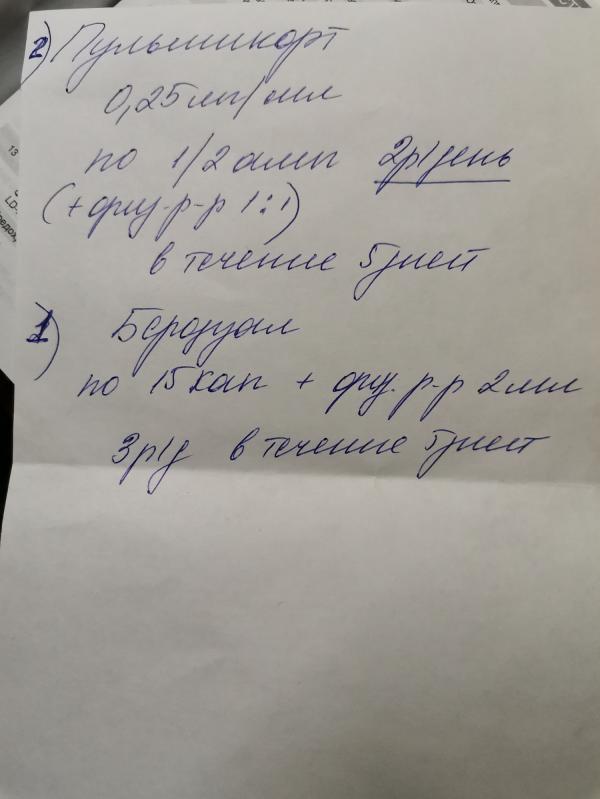 2) Пульмикорт
0,25мг/мл
по 1/2 амп 2р/день
(+ физ-р-р 1:1)
в течение 5 дней
1) Беродуал
по 15 кап + физ. р-р 2 мл
3р/д в течение 5 дней
13
LD-